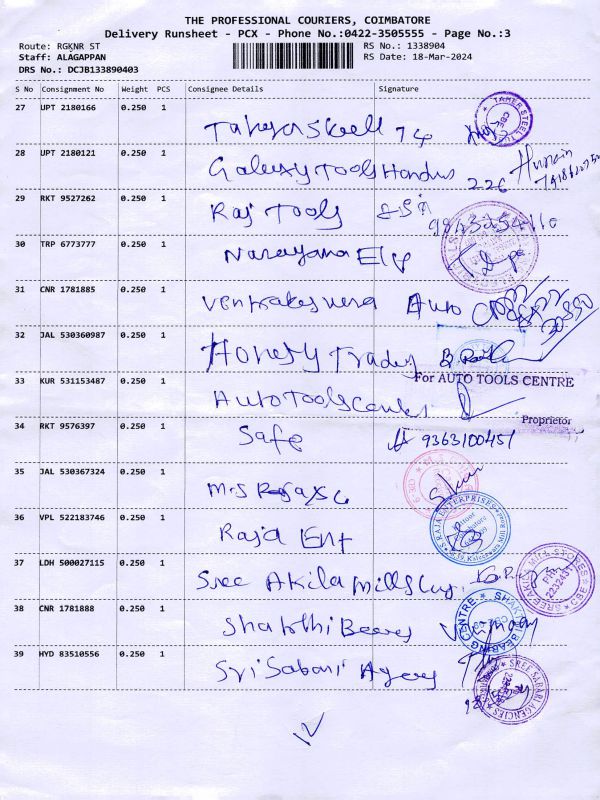 THE PROFESSIONAL COURIERS, COIMBATORE
Delivery Runsheet - PCX - Phone No.:0422-3505555 - Page No.:3
Route: RGKNR ST RS No.: 1338904
Staff: ALAGAPPAN RS Date: 18-Mar-2024
DRS No.: DCJB133890403
S No Consignment No Weight PCS Consignee Details Signature
27 UPT 2180166 0.250 1
Taher Steell 74
TAHER STEEL
28 UPT 2180121 0.250 1
Galexy Tools Hondus 226 Husain
29 RKT 9527262 0.250 1
Raj Tools
30 TRP 6773777 0.250 1
Narayana Elc
31 CNR 1781885 0.250 1
Venkateswera Auto
32 JAL 530360987 0.250 1
Honesty Trades
For AUTO TOOLS CENTRE
33 KUR 531153487 0.250 1
Auto Tools Center
Proprietor
34 RKT 9576397 0.250 1
Safe 9363100451
35 JAL 530367324 0.250 1
36 VPL 522183746 0.250 1
Raja Ent
RAJA ENTERPRISES
37 LDH 500027115 0.250 1
Sree Akila Mills
SREE AKILA MILL STORES
38 CNR 1781888 0.250 1
Shakthi Beares
SHAKTHI BEARING CENTRE
39 HYD 83510556 0.250 1
Sri Sabari Agency
SREE SABARI AGENCIES